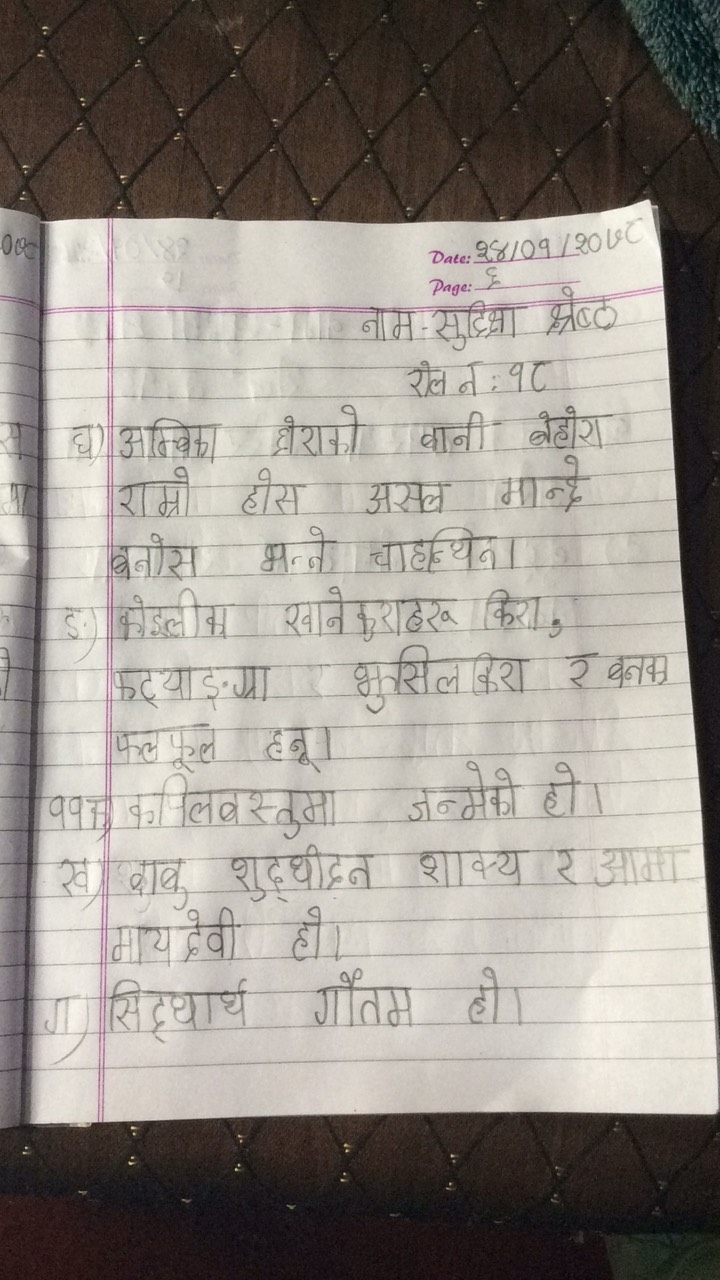 Date: २४/०१/२०७८
Page: ६
नाम - सुदिक्षा श्रेष्ठ
रोल न : १८
घ) अम्बिका छोराको बानी बेहोरा
राम्रो होस असल मान्छे
बनोस भन्ने चाहन्थिन।
ङ) कोइलीका खानेकुराहरू किरा,
फट्याङ्ग्रा र भुसिलकिरा र वनका
फलफूल हुनू।
११क) कपिलवस्तुमा जन्मेको हो।
ख) बाबु शुद्धोदन शाक्य र आमा
मायदेवी हो।
ग) सिद्धार्थ गौतम हो।